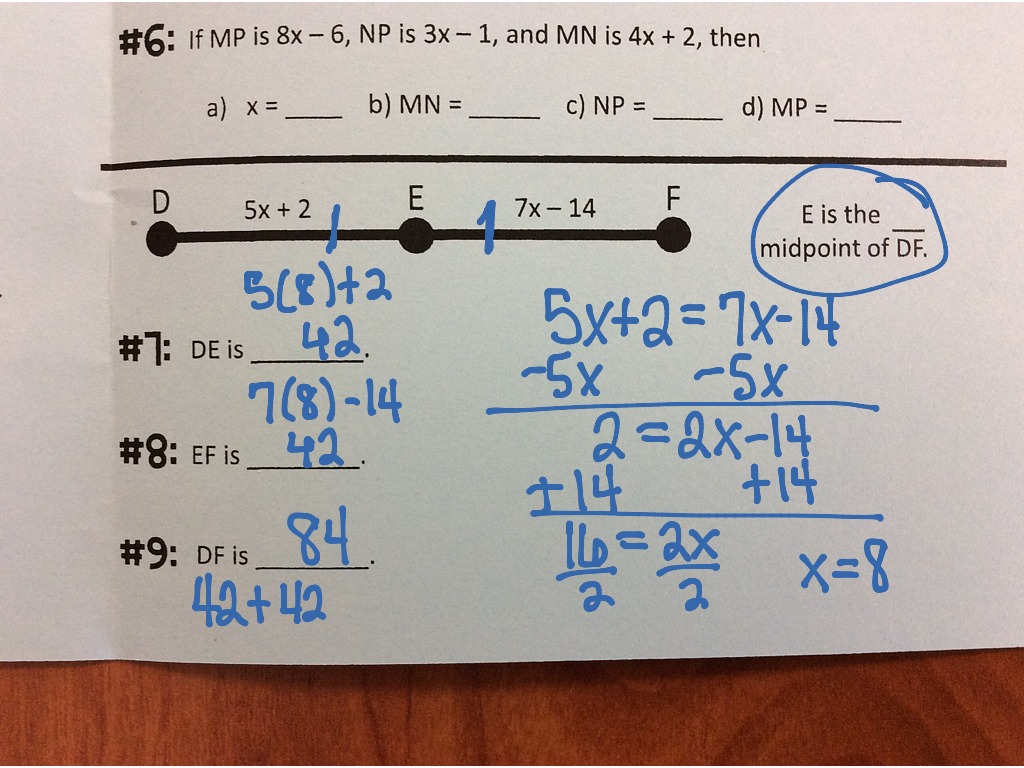 #6: If MP is 8x – 6, NP is 3x – 1, and MN is 4x + 2, then
a) x = ____ b) MN = _____ c) NP = _____ d) MP = _____
D E F
5x + 2 7x – 14
E is the
midpoint of DF.
5(8)+2
#7: DE is 42.
7(8)-14
#8: EF is 42.
#9: DF is 84.
42+42
5x+2=7x-14
-5x -5x
2=2x-14
+14 +14
16=2x
2 2
x=8